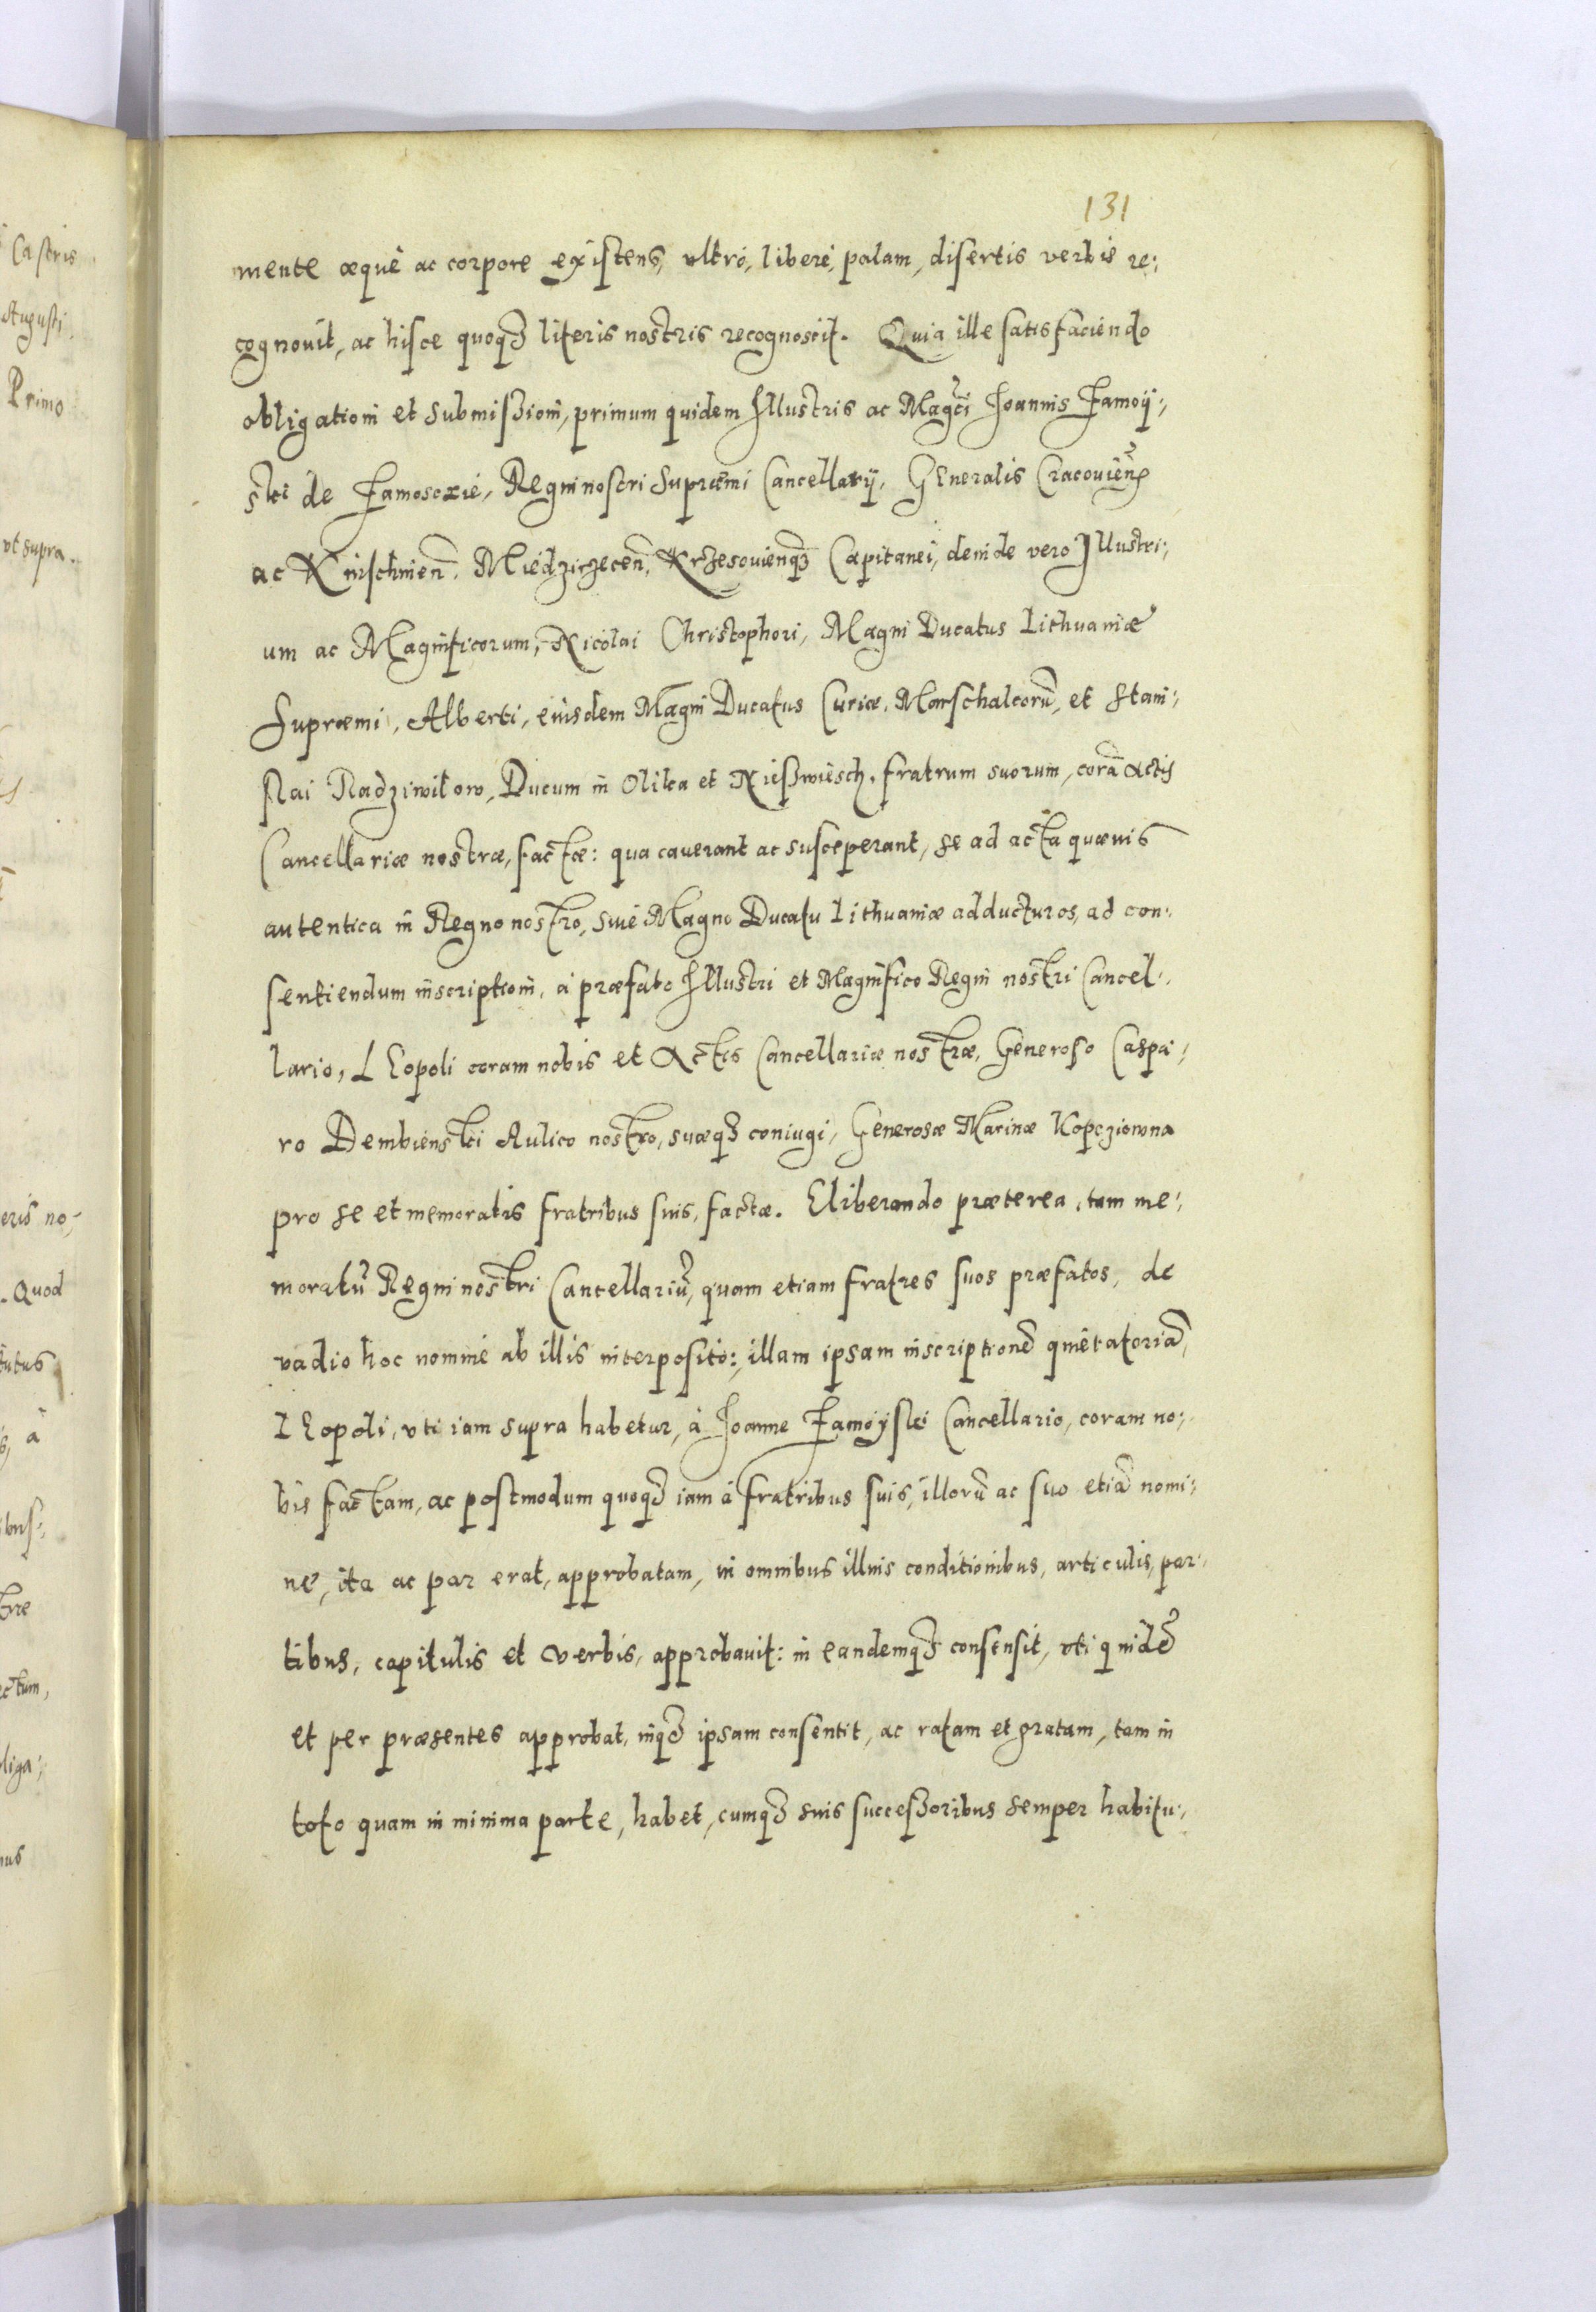 131
mente æquè ac corpore existens, vltrò, liberè, palam, disertis verbis re:
cognouit, ac hisce quoq₃ literis nostris recognoscit. Quia ille satisfaciendo
obligationi et submißioni, primum quidem Illustris ac Mag̃ci Joannis Zamoÿ:
ski de Zamoscie, Regni nostri Supræmi Cancellarÿ, Generalis Cracouieñ
ac Knischineñ. Miedzirzeceñ, Krzesouienq₃ Capitanei, deinde vero Illustri:
um ac Magnificorum, Nicolai Christophori, Magni Ducatus Lithuaniæ
Supræmi, Alberti, eiusdem Magni Ducatus Curiæ, Marschalcorũ, et Stani:
slai Radziwilow, Ducum in Olika et Nießwiesch, fratrum suorum, corã Actis
Cancellariæ nostræ, factæ: qua cauerant ac susceperant, se ad acta quæuis
autentica in Regno nostro, siue Magno Ducatu Lithuaniæ adducturos, ad con:
sentiendum inscriptioni, à præfato Illustri et Magnifico Regni nostri Cancel:
lario, LEopoli coram nobis et Actis Cancellariæ nostræ, Generoso Caspa:
ro Dembienski Aulico nostro, suæq₃ coniugi, Generosæ Marinæ Kopcziowna
pro se et memoratis fratribus suis, factæ. Eliberando præterea, tam me:
moratũ Regni nostri Cancellariũ, quam etiam fratres suos præfatos, de
vadio hoc nomine ab illis interposito:, illam ipsam inscriptionẽ quietatoriã,
LEopoli, vti iam supra habetur, à Joanne Zamoÿski Cancellario, coram no:
bis factam, ac postmodum quoq₃ iam à fratribus suis, illorũ ac suo etiã nomi:
ne, ita ac par erat, approbatam, in omnibus illius conditionibus, articulis, par:
tibus, capitulis et verbis, approbauit: in eandemq₃ consensit, vti quidẽ
et per præsentes approbat, inq₃ ipsam consentit, ac ratam et gratam, tam in
toto quam in minima parte, habet, cumq₃ suis succeßoribus semper habitu:
Castris
Augusti
Primo
vt supra.
eris no:
. Quod
liga: